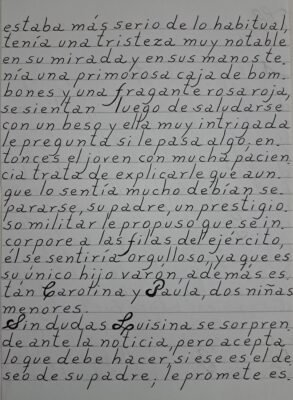 estaba más serio de lo habitual,
tenía una tristeza muy notable
en su mirada y en sus manos te.
nía una primorosa caja de bom.
bones y una fragante rosa roja,
se sientan luego de saludarse
con un beso y ella muy intrigada
le pregunta si le pasa algo, en.
tonces el joven con mucha pacien.
cia trata de explicarle que aun.
que lo sentía mucho debían se.
pararse, su padre, un prestigio.
so militar le propuso que se in.
corpore a las filas del ejército,
él se sentiría orgulloso, ya que es
su único hijo varón, además es.
tán Carolina y Paula, dos niñas
menores.
Sin dudas Luisina se sorpren.
de ante la noticia, pero acepta
lo que debe hacer, si ese es el de
seo de su padre; le promete es.